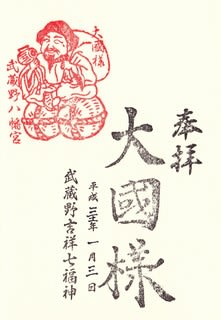 奉拝
大國様
平成二十二年一月三日
武蔵野吉祥七福神
大國様
武蔵野八幡宮